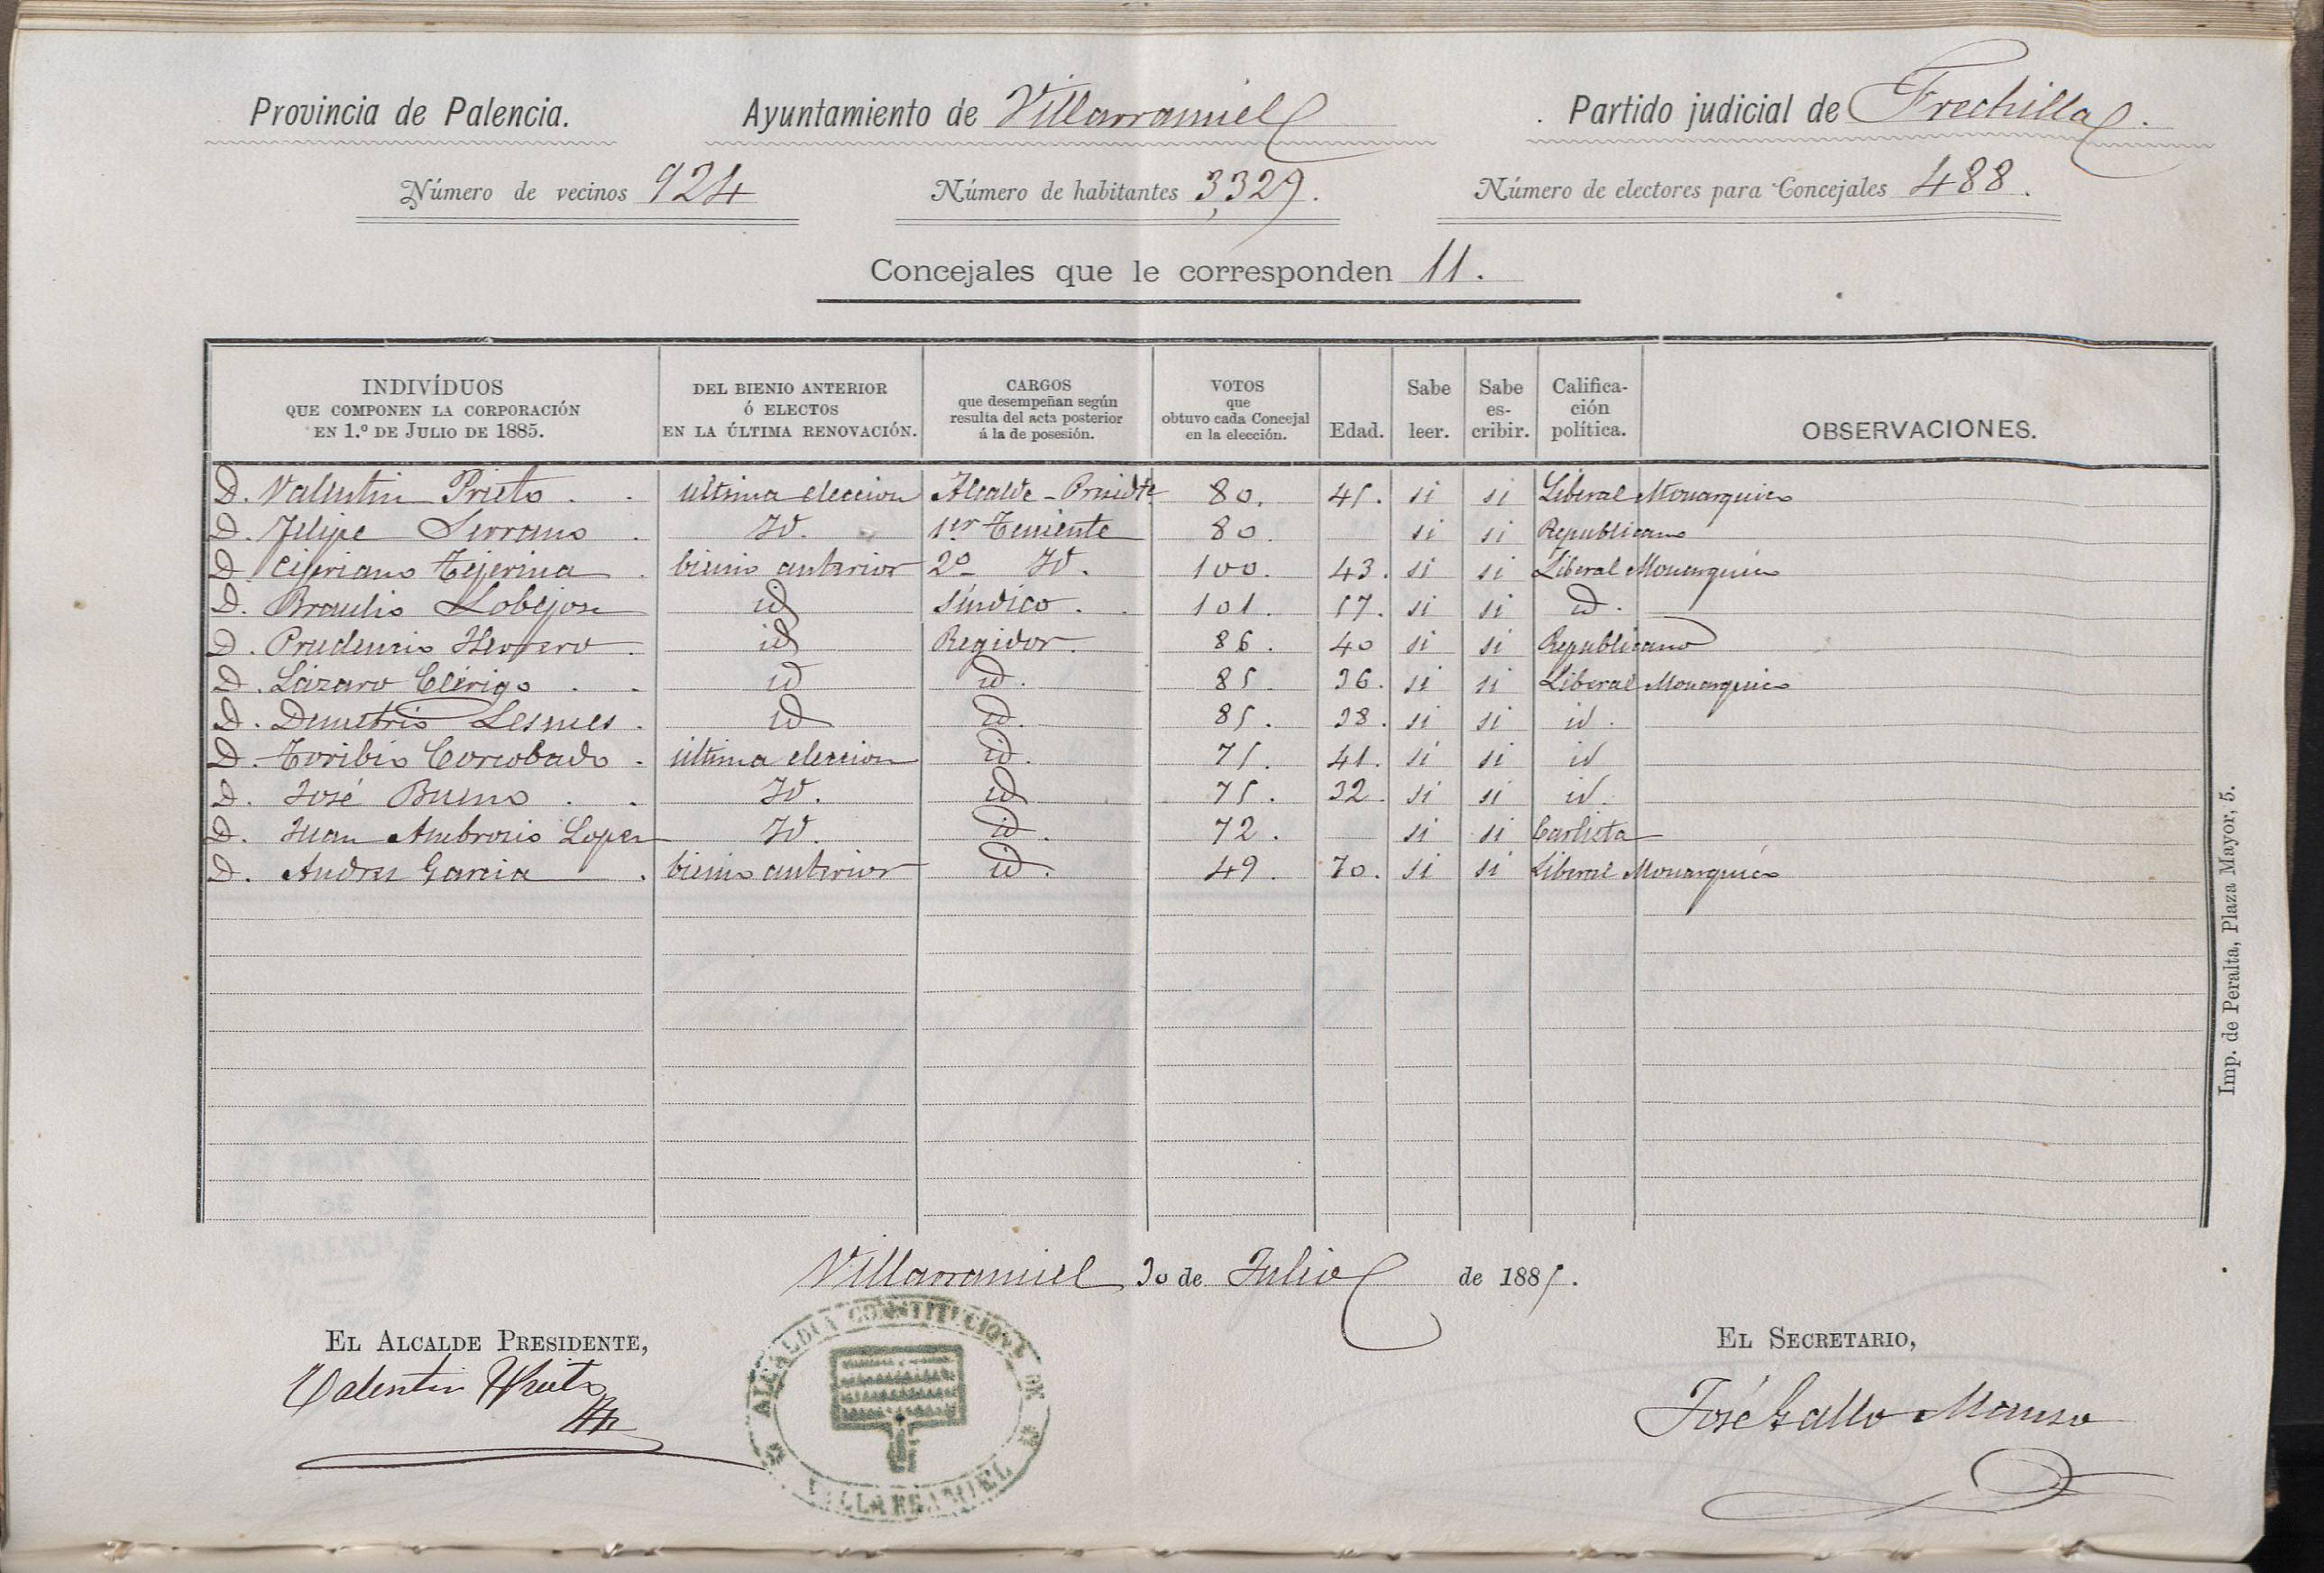 Provincia de Palencia. Ayuntamiento de Villarramiel Partido judicial de Frechilla.
Número de vecinos 924 Número de habitantes 3,329. Número de electores para Concejales 488.
Concejales que le corresponden 11.
INDIVÍDUOS QUE COMPONEN LA CORPORACIÓN EN 1.º DE JULIO DE 1885. DEL BIENIO ANTERIOR Ó ELECTOS EN LA ÚLTIMA RENOVACIÓN. CARGOS que desempeñan según resulta del acta posterior á la de posesión. VOTOS que obtuvo cada Concejal en la elección. Edad. Sabe leer. Sabe es-cribir. Califica-ción política. OBSERVACIONES.
D. Valentin Prieto . . ultima eleccion Alcalde-Presidte 80. 45. si si Liberal Monarquico
D. Felipe Serrano . Id. 1er Teniente 80. si si Republicano
D. Cipriano Tejerina . bienio anterior 2º Id. 100. 43. si si Liberal Monarquico
D. Braulio Lobejon id Síndico . . 101. 57. si si id.
D. Prudencio Herrero . id Regidor. 86. 40 si si Republicano
D. Lázaro Clérigo . . id id. 85. 36. si si Liberal Monarquico
D. Demetrio Lesmes . id id. 85. 38. si si id.
D. Toribio Corcobado . última eleccion id. 75. 41. si si id
D. José Bueno . . Id. id 75. 32. si si id.
D. Juan Ambrosio Lopez Id. id. 72. si si Carlista
D. Andres Garcia . bienio anterior id. 49. 70. si si Liberal Monarquico
Villarramiel 30 de Julio de 1885.
EL ALCALDE PRESIDENTE, EL SECRETARIO,
Valentin Prieto
José Gallo Manso
ALCALDIA CONSTITUCIONAL DE VILLARRAMIEL
Imp. de Peralta, Plaza Mayor, 5.